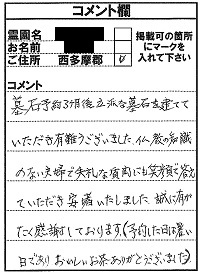 コメント欄
霊園名
お名前
ご住所 西多摩郡 ✓
掲載可の箇所
にマークを
入れて下さい
コメント
墓石予約3ヶ月後立派な墓石を建てて
いただき有難うございました。仏教の知識
のない夫婦で失礼な質問にも笑顔で答え
ていただき安堵いたしました。誠に有が
たく感謝しております。(予約した日は暑い
日であり おいしいお茶ありがとうございました)